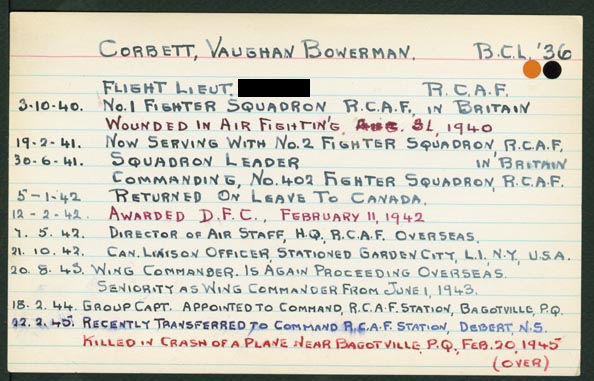 CORBETT, VAUGHAN BOWERMAN. B.C.L. '36
FLIGHT LIEUT. R.C.A.F.
3-10-40. No.1 FIGHTER SQUADRON R.C.A.F., IN BRITAIN
WOUNDED IN AIR FIGHTING, AUG. 31, 1940
19-2-41. NOW SERVING WITH No.2 FIGHTER SQUADRON, R.C.A.F.
30-6-41. SQUADRON LEADER IN BRITAIN
COMMANDING, No.402 FIGHTER SQUADRON, R.C.A.F.
5-1-42 RETURNED ON LEAVE TO CANADA.
12-2-42. AWARDED D.F.C., FEBRUARY 11, 1942
7. 5. 42. DIRECTOR OF AIR STAFF, H.Q., R.C.A.F. OVERSEAS.
21. 10. 42. CAN. LIAISON OFFICER, STATIONED GARDEN CITY, L.I., N.Y., U.S.A.
20. 8. 43. WING COMMANDER. IS AGAIN PROCEEDING OVERSEAS.
SENIORITY AS WING COMMANDER FROM JUNE 1, 1943.
18. 2. 44. GROUP CAPT. APPOINTED TO COMMAND, R.C.A.F. STATION, BAGOTVILLE, P.Q.
22. 2. 45. RECENTLY TRANSFERRED TO COMMAND R.C.A.F. STATION, DEBERT, N.S.
KILLED IN CRASH OF A PLANE NEAR BAGOTVILLE, P.Q., FEB. 20, 1945
(OVER)